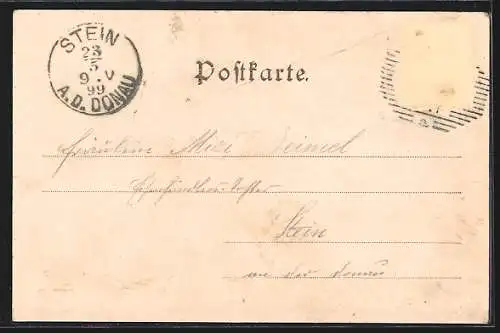 STEIN
23
5
9. V
99
A.D. DONAU
Postkarte.
Fräulein Mizi
Stein
an der Donau